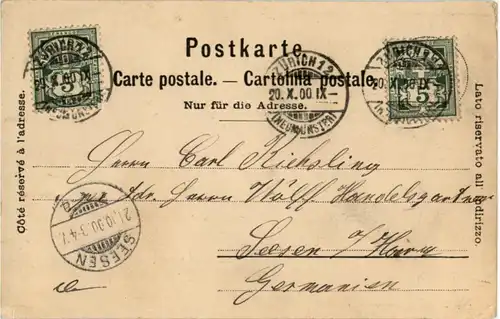 Postkarte.
Carte postale. — Cartolina postale.
Nur für die Adresse.
Côté réservé à l'adresse.
Lato riservato all' indirizzo.
ZÜRICH 12
20.X.00 IX
(NEUMÜNSTER)
ZÜRICH 12
20.X.00 IX
5
5
Herrn Carl
Herrn Wolff Handelsgärtner
Seesen a/Harz
Germanien
SEESEN